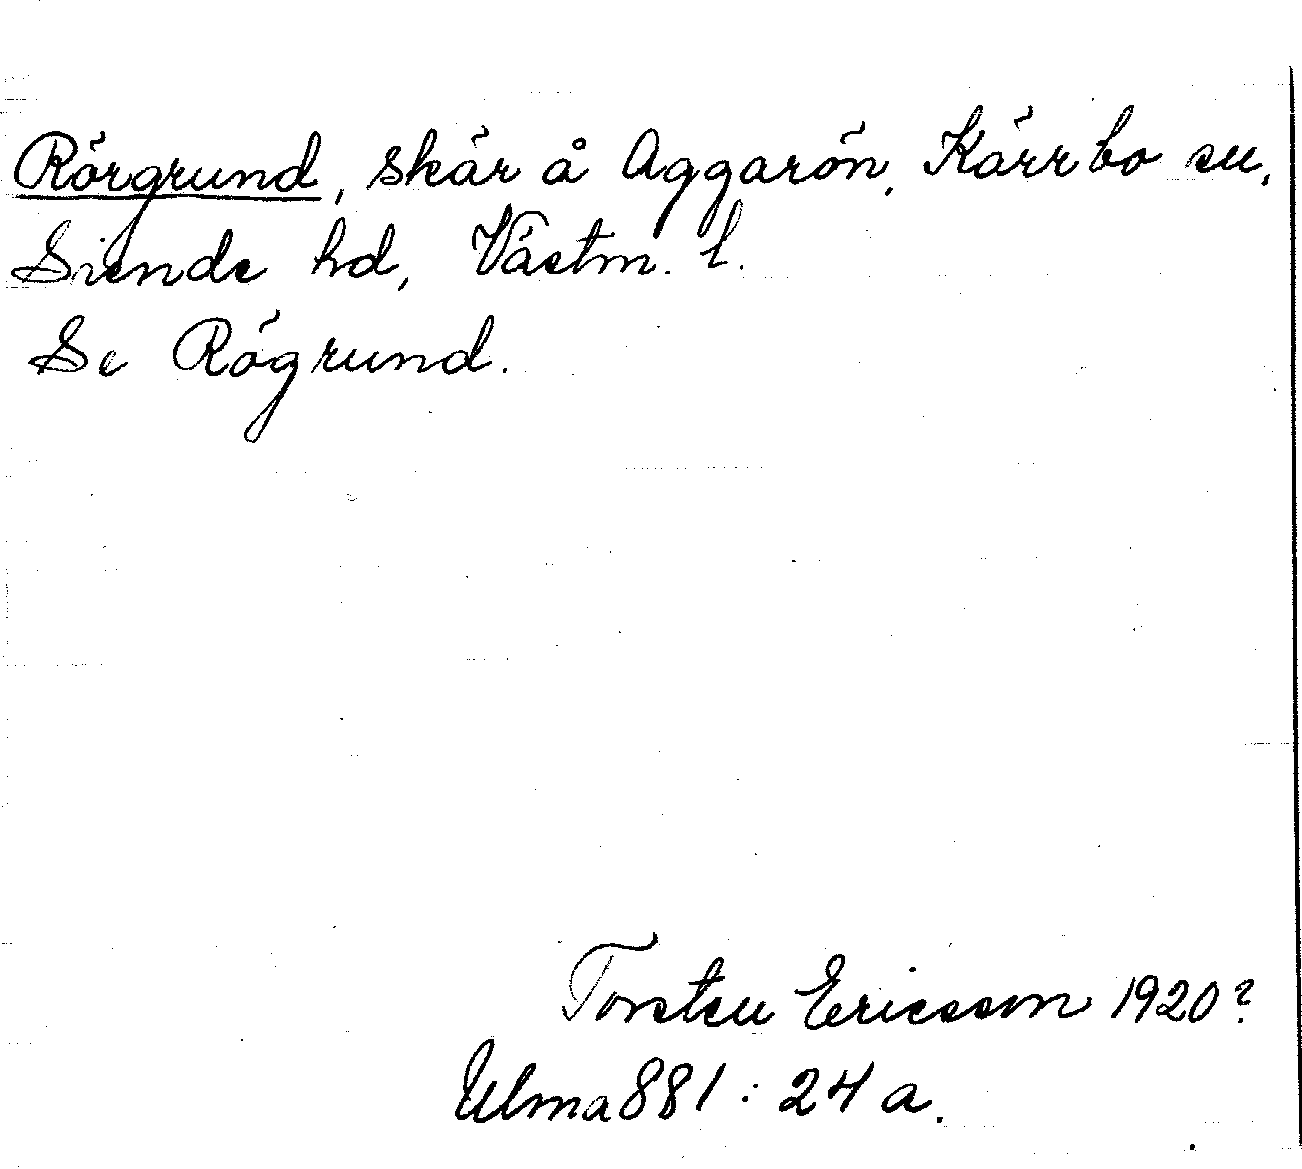 Rörgrund, skär å Aggarön, Kärrbo sn,
Siende hd, Västm. l.
Se Rögrund.
Torsten Ericsson 1920?
Ulma 881 : 24 a.